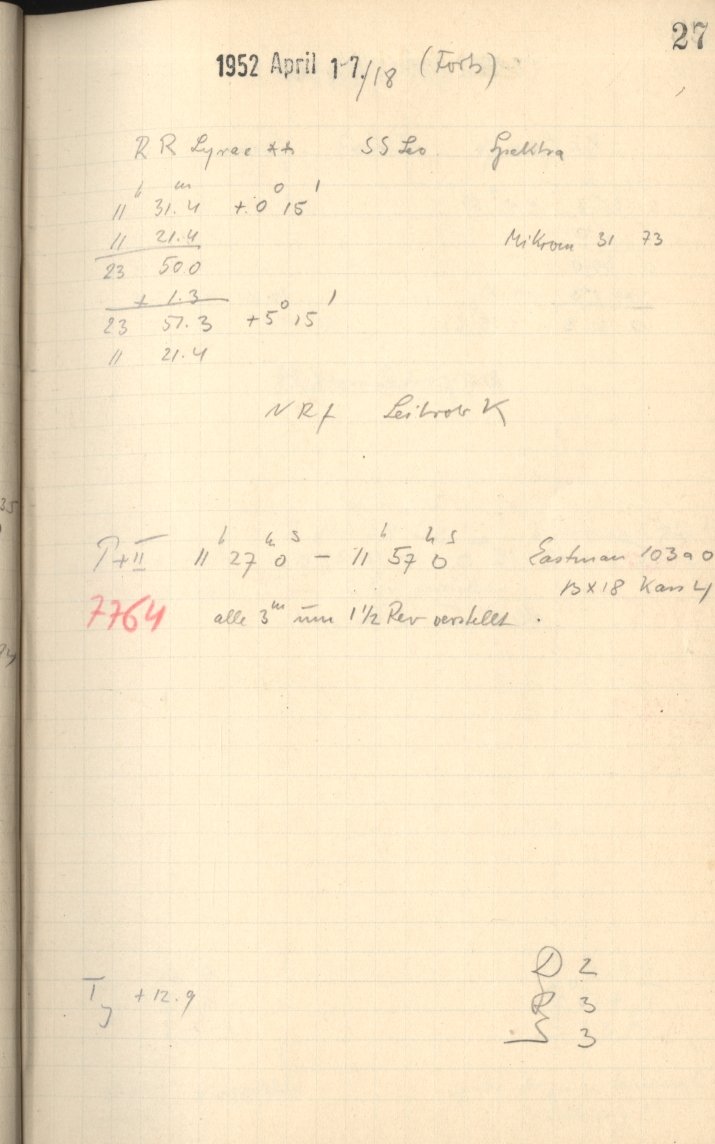 27
1952 April 17/18 (Forts)
RR Lyrae ** SS Leo Spektra
11h 31.4m +0° 15'
11 21.4
Mikrom 31 73
23 50 0
+ 1.3
23 51.3 +5° 15'
11 21.4
NRf Leitrohr K
P+II 11h 27m 0s - 11h 57m 0s Eastman 103a0
13x18 Kass 4
7764 alle 3m um 1 1/2 Rev verstellt.
D 2
T +12.9 R 3
3